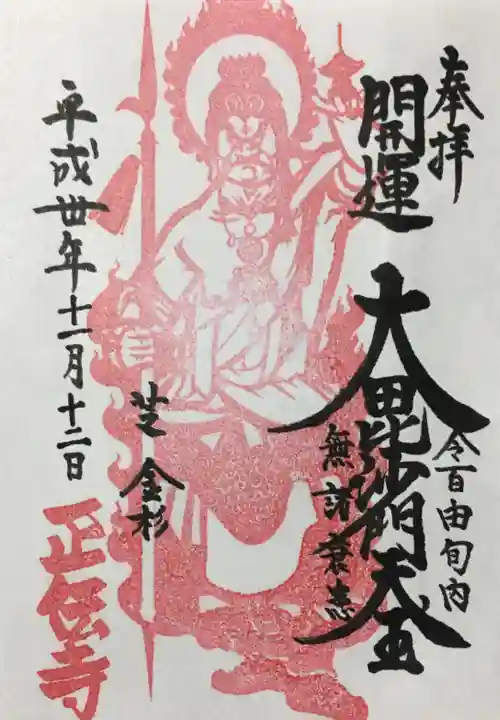 奉拝
開運
大毘沙門天王
令百由旬内
無諸衰患
芝 金杉
平成丗年十一月十二日
正伝寺